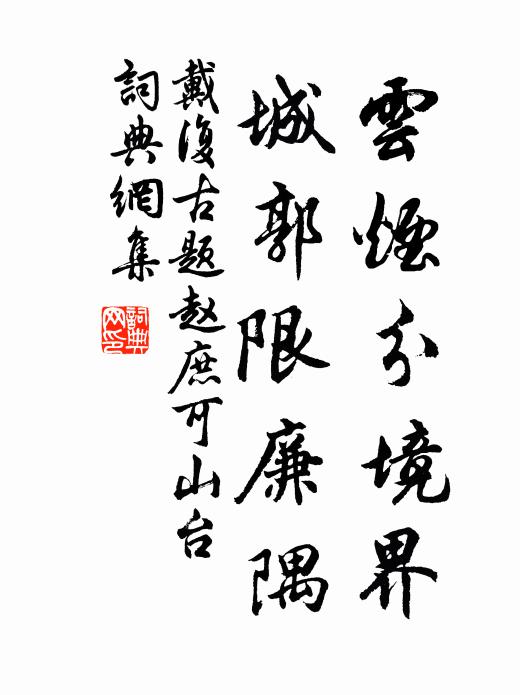 雲煙分境界
城郭限廉隅
戴復古题赵庶可山台
詞典網集
詞典网印